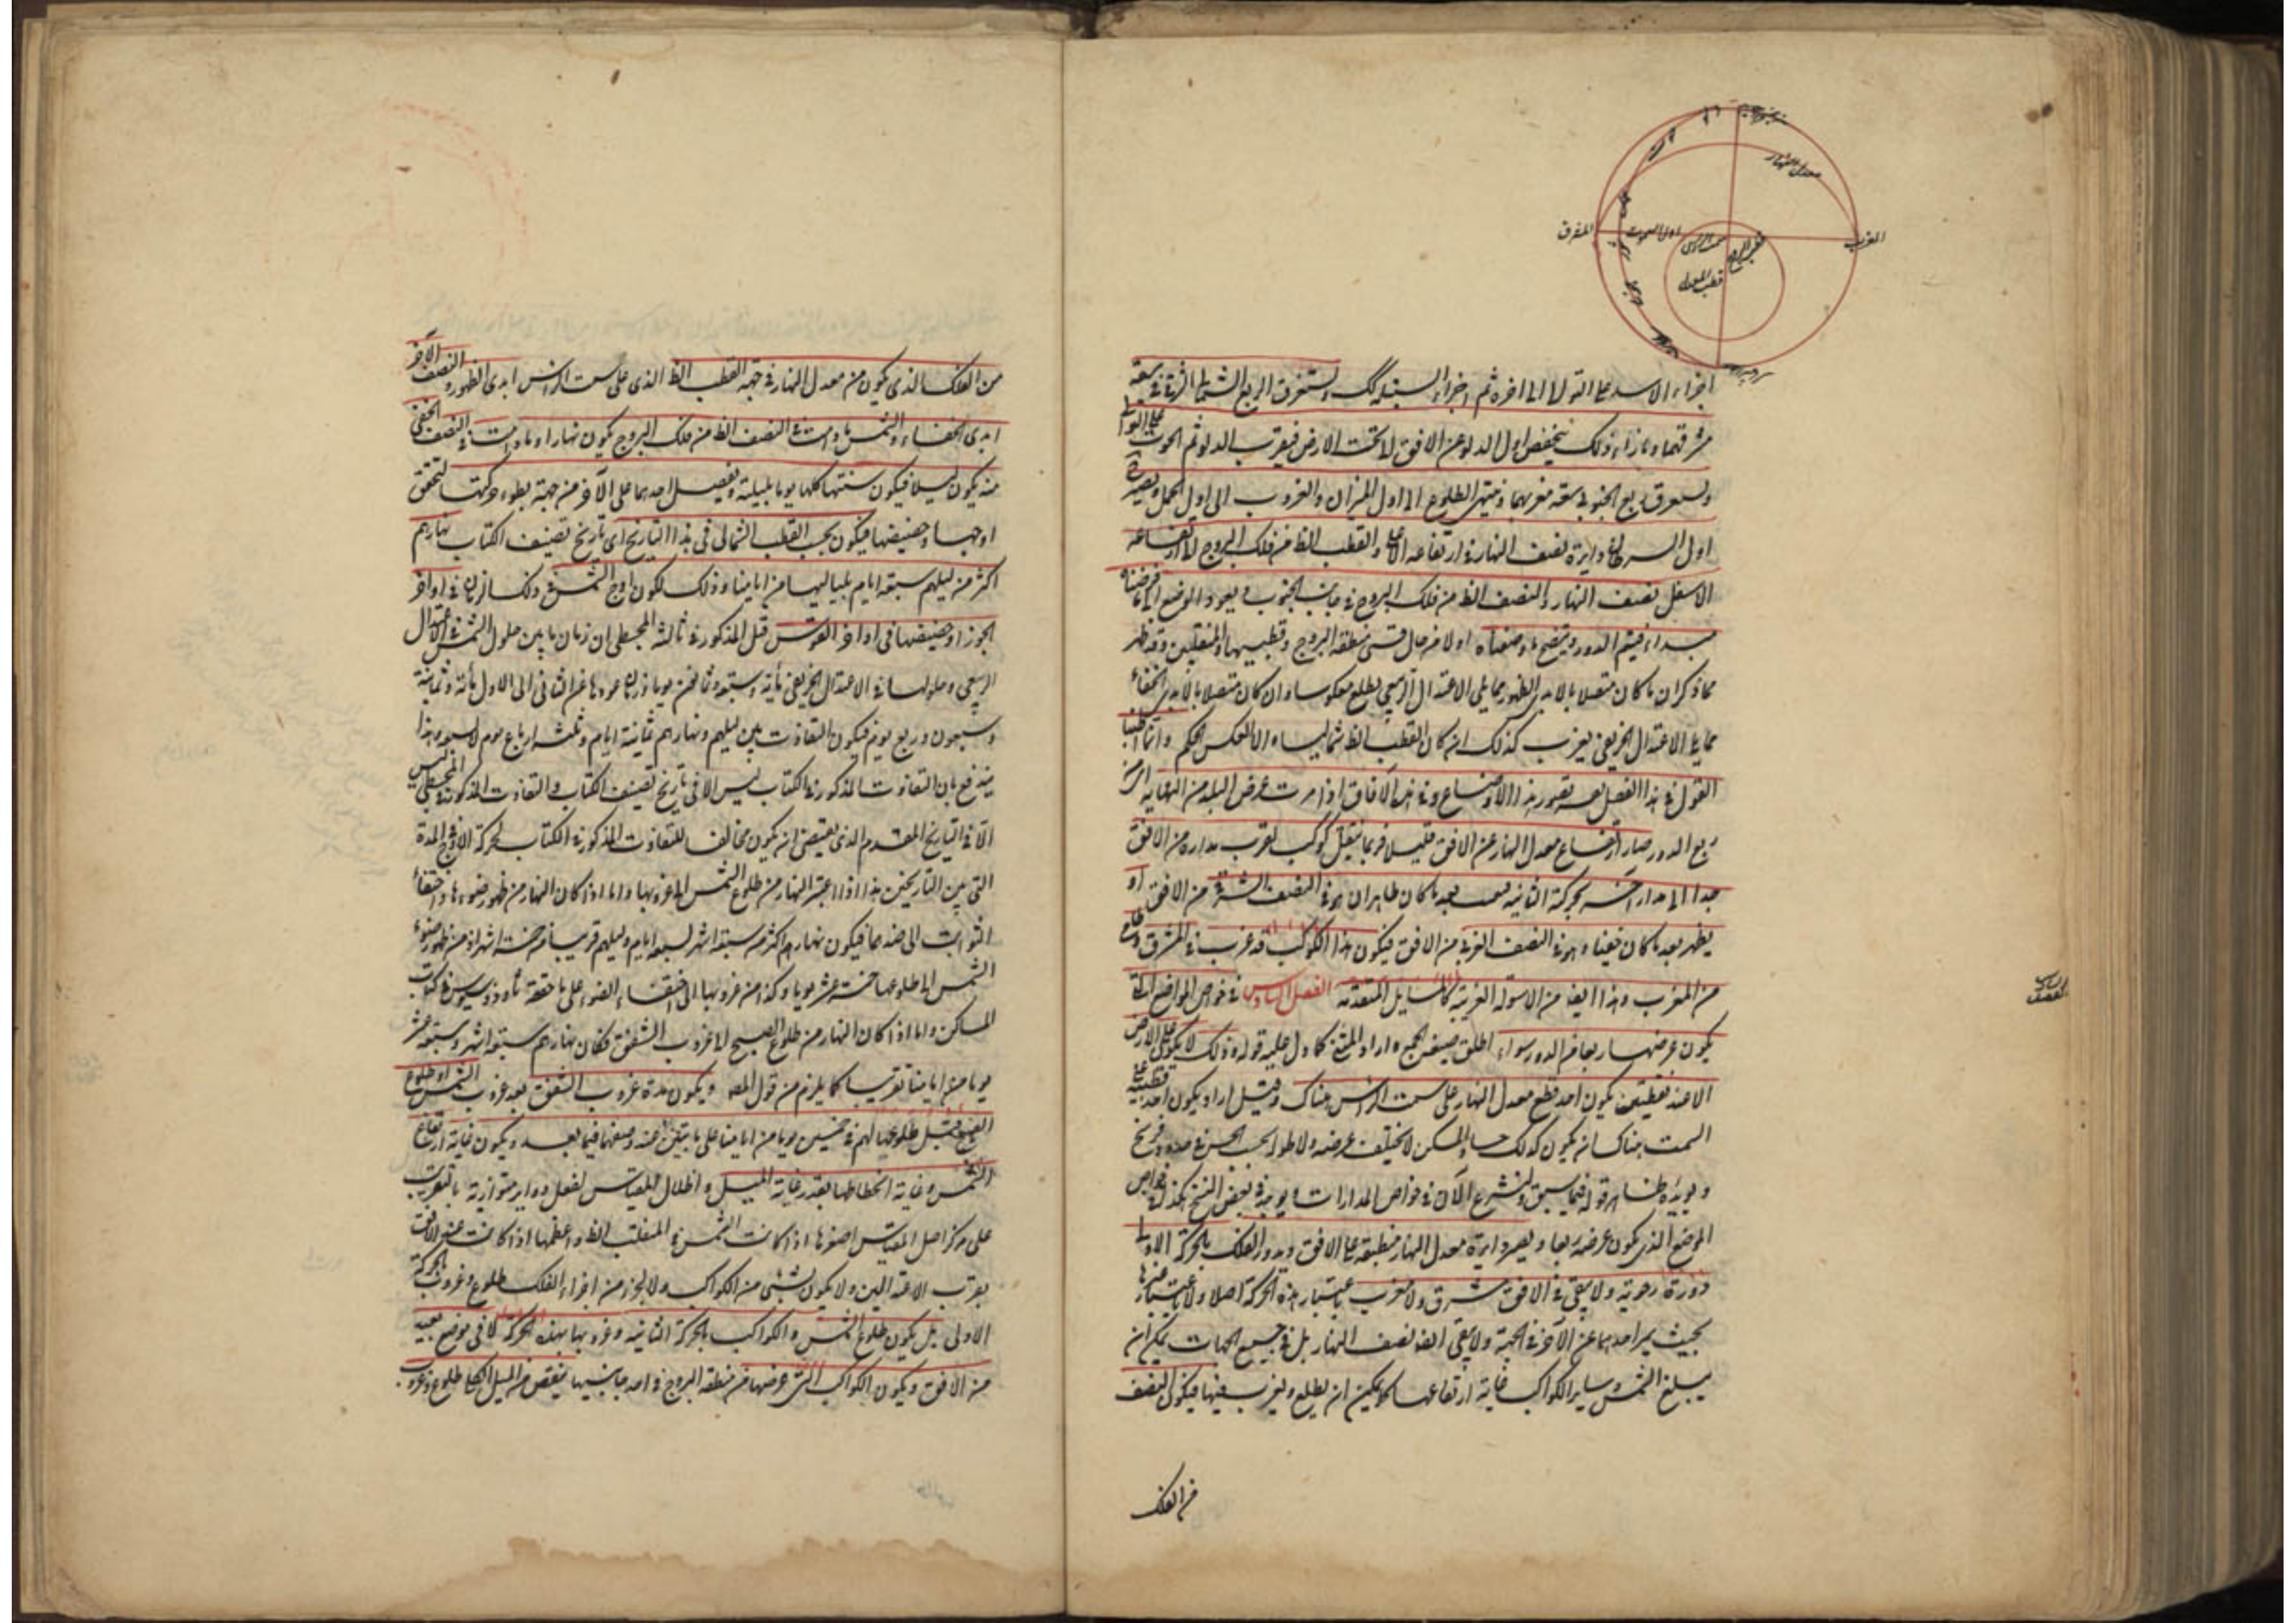 معدل النهار
المشرق
اول السموت
سمت الراس
قطب البروج
المغرب
قطب المعدل
اجزاء الاسد على التوالى الى اخره ثم اجزاء السنبلة كك الربع الشمالى سعة
مشرقهما وبازاء ذلك ينخفض اول الدلو عن الافق تحت الارض فيغرب الدلو ثم الحوت على التوالى
ربع الجنوبى سعة مغربهما وينتهى الطلوع الى اول الميزان والغروب الى اول الحمل ويصير
اول السرطان دايرة نصف النهار فى ارتفاعه الاعلى والقطب الظ من فلك البروج ارتفاعه
الاسفل نصف النهار والنصف الظ من فلك البروج فى جانب الجنوب ويعود الوضع الى ما فرضناه
فيتم الدور ويتضح ما وصفناه اولا من حال قسى منطقة البروج وقطبيها والمنقلبين وقد ظهر
مما ذكر ان ما كان متصلا بالابدى الظهور مما يلى الاعتدال الربيعى يطلع معكوسا وان كان متصلا بالابدى الخفاء
مما يلى الاعتدال الخريفى يغرب كذلك ان كان القطب الظ شماليا والا بالعكس الحكم وانما اطنبنا
القول فى هذا الفصل تصور هذه الاوضاع وفى هذه الآفاق اذا عرض البلد من النهاية اى من
ربع الدور صار ارتفاع معدل النهار عن الافق قليلا فربما ينتقل كوكب بقرب مداره من الافق
جدا الى مدار آخر بحركته الثانية بعد ما كان ظاهرا وهو فى النصف الشرقى من الافق او
يظهر بعد ما كان خفيا وهو فى النصف الغربى من الافق فيكون هذا الكوكب قد غرب فى المشرق وطلع
من المغرب وهذا ايضا من الاسولة الغريبة كالمسايل المتقدمة الفصل السادس فى خواص المواضع التى
يكون عرضها ربعا من الدور سواء اطلق صيغة الجمع واراد المثنى كما دل عليه قوله وذلك لا يكون على الارض
الا عند نقطتين يكون احد قطبى معدل النهار على سمت الراس هناك وقيل اراد
السمت هناك يكون كذلك والمسكن لا يختلف عرضه ولا طوله بحسب الحس
ويؤيده ظاهر قوله فيما سبق ولنشرع الآن فى خواص المدارات ويوجد فى بعض النسخ هكذا فى خواص
الموضع الذى يكون عرضه ربعا ويصير دايرة معدل النهار منطبقة على الافق ويدور الفلك بالحركة الاولى
دورة رحوية ولا يبقى فى الافق مشرق ولا مغرب باعتبار هذه الحركة اصلا ولا باعتبار غيرها
بحيث يميز احدهما عن الآخر فى الجهة ولا يبقى ايضا نصف النهار بل فى جميع الجهات يمكن ان
يبلغ الشمس وساير الكواكب غاية ارتفاعها كما يمكن ان يطلع ويغرب فيها فيكون النصف
من الفلك
الفصل السادس
من الفلك الذى يكون من معدل النهار فى جهة القطب الظ الذى على سمت الراس ابدى الظهور والنصف الآخر
ابدى الخفاء والشمس ما دامت فى النصف الظ من فلك البروج يكون نهارا وما دامت فى النصف الخفى
منه يكون ليلا فيكون سنتها كلها يوما بليلته وتفضيل احدهما على الآخر من جهة بطوء حركتها
اوجها وحضيضها فيكون بحسب القطب الشمالى فى هذا التاريخ اى تاريخ تصنيف الكتاب نهارهم
اكثر من ليلهم سبعة ايام بلياليها من ايامنا وذلك لكون اوج الشمس فى ذلك الزمان فى اواخر
الجوزاء وحضيضها فى اواخر القوس قيل المذكور فى ثالثة المجسطى ان زمان ما بين حلول الشمس فى الاعتدال
الربيعى وحلولها فى الاعتدال الخريفى مأية وسبعة وثمانون يوما وزمان عودها من الثانى الى الاول مأية وثمانية
وسبعون وربع يوم فيكون التفاوت بين ليلهم ونهارهم ثمانية ايام وثلثة ارباع يوم لا سبعة وهذا
يندفع بان التفاوت المذكور فى الكتاب ليس الا فى تاريخ تصنيف الكتاب والتفاوت المذكور فى المجسطى ليس
الا فى التاريخ المتقدم الذى يقتضى ان يكون مخالفا للتفاوت المذكور فى الكتاب لحركة الاوج فى المدة
التى بين التاريخين هذا اذا اعتبر النهار من طلوع الشمس الى غروبها واما اذا كان النهار من ظهور ضوءها واختفاء
الثوابت الى ضدهما فيكون نهارهم اكثر من سبعة اشهر بسبعة ايام وليلهم قريبا من خمسة اشهر اذ من ظهور ضوء
الشمس الى طلوعها خمسة عشر يوما وكذا من غروبها الى اختفاء الضوء على ما حققه ثاوذوسيوس فى كتاب
المساكن واما اذا كان النهار من طلوع الصبح الى غروب الشفق فكان نهارهم سبعة اشهر وسبعة عشر
يوما من ايامنا تقريبا كما يلزم من قول المصه ويكون مدة غروب الشفق بعد غروب الشمس او طلوع
الصبح قبل طلوعها لهم فى خمسين يوما من ايامنا على ما يتبين عند وصفهما فيما بعد ويكون غاية ارتفاع
الشمس وغاية انحطاطها بقدر غاية الميل واظلال المقياس تفعل دواير متوازية بالتقريب
على مركز اصل المقياس اصغرها اذا كانت الشمس فى المنقلب الظ واعظمها اذا كانت عند الافق
بقرب الاعتدالين ولا يكون لشئ من الكواكب ولا لجزء من اجزاء الفلك طلوع وغروب بالحركة
الاولى بل يكون طلوع الشمس والكواكب بالحركة الثانية وغروبها بهذه الحركة لا فى موضع بعينه
من الافق ويكون للكواكب التى عرضها من منطقة البروج فى احد جانبيها ينقص من الميل الكلى طلوع وغروب